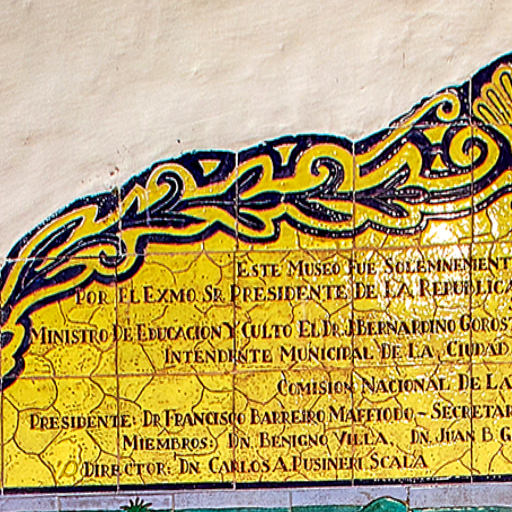 ESTE MUSEO FUE SOLEMNEMENT
POR EL EXMO SR PRESIDENTE DE LA REPUBLICA
MINISTRO DE EDUCACION Y CULTO EL DR. J. BERNARDINO GOROS
INTENDENTE MUNICIPAL DE LA CIUDAD
COMISION NACIONAL DE LA
PRESIDENTE: DR FRANCISCO BARREIRO MAFFIODO - SECRETAR
MIEMBROS: DN. BENIGNO VILLA. DN. JUAN B G
DIRECTOR: DN CARLOS A. PUSINERI SCALA